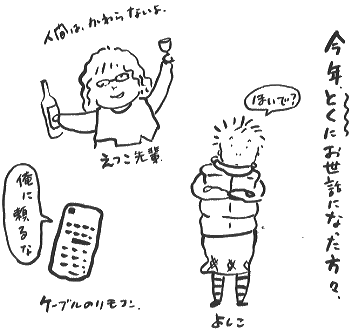 今年とくにお世話になった方々。
人間は、かわらないよ。
えつこ先輩
ほいで?
よしこ
俺に頼るな
ケーブルのリモコン。